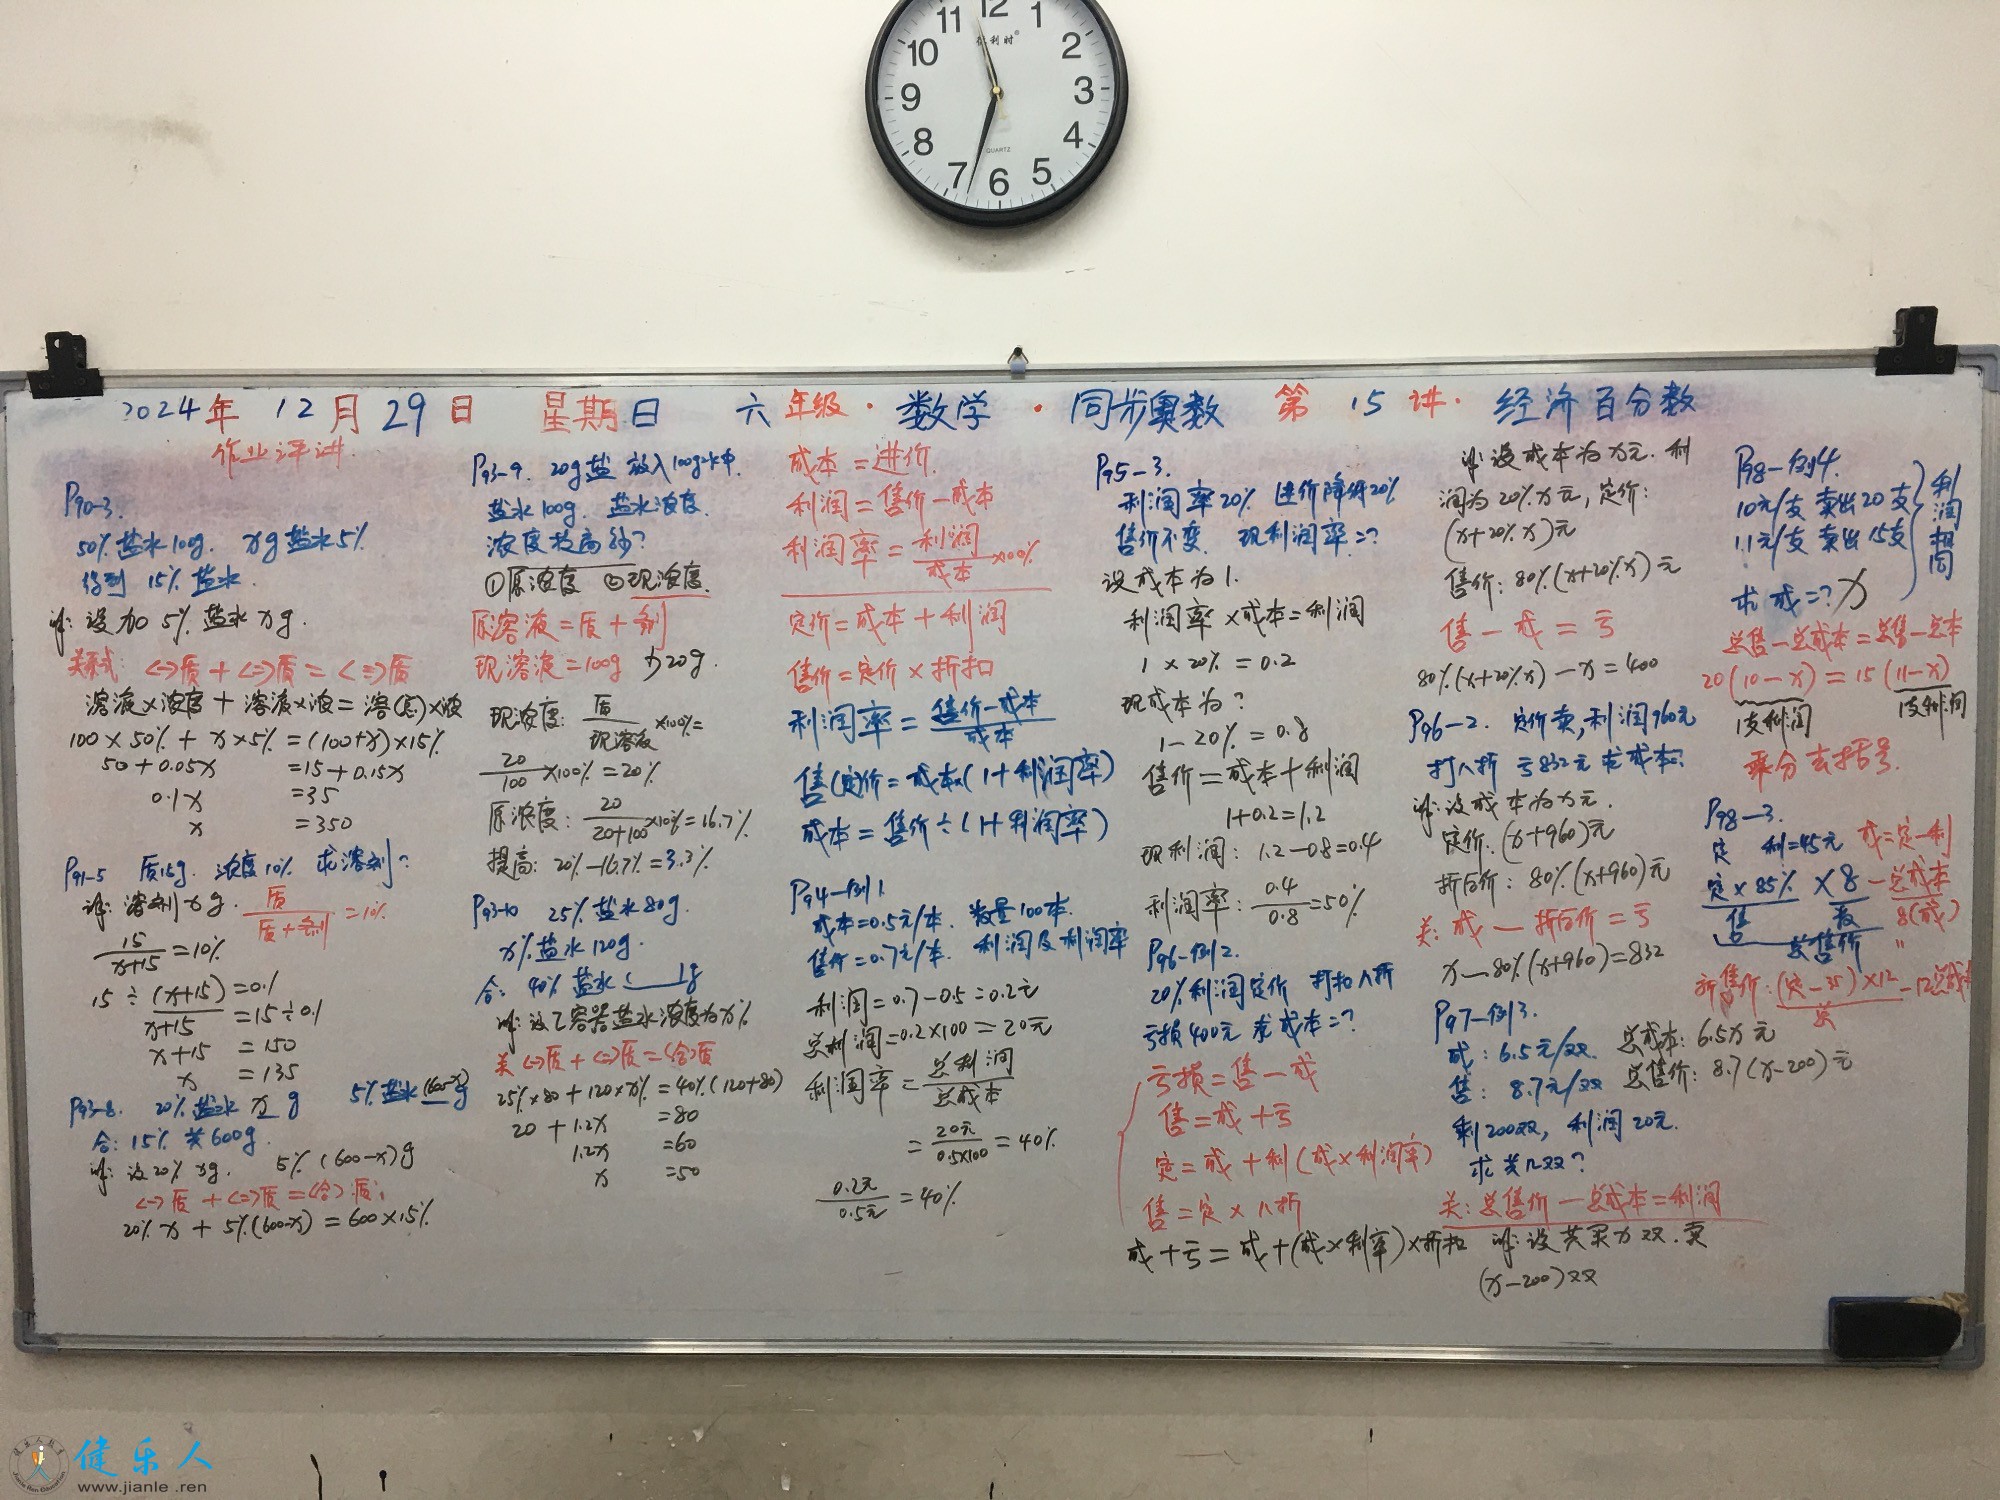 11 12 1
10 2
9 3
8 4
7 6 5
QUARTZ
2024年 12月29日 星期日 六年级·数学·同步奥数 第15讲·经济百分数
作业评讲.
P90-3.
50%盐水10g. xg盐水5%
得到 15%盐水.
设加5%盐水xg.
关系式: <->质+<=>质=<≡>质
溶液×浓度+溶液×浓=溶(总)×浓
100×50%+x×5%=(100+x)×15%
50+0.05x =15+0.15x
0.1x =35
x =350
P91-5 质15g. 浓度10% 求溶剂?
溶剂xg. 质/质+剂=10%
15/x+15=10%
15÷(x+15)=0.1
x+15=15÷0.1
x+15 =150
x =135
P93-8. 20%盐水 x g 5%盐水(600-x)g
合:15% 关600g.
设20% xg. 5%(600-x)g
<->质+<=>质=<合>质
20%x+5%(600-x)=600×15%
P93-9. 20g盐 放入100g水中.
盐水100g. 盐水浓度.
浓度提高多少?
①原浓度 ②现浓度.
原溶液=质+剂
现溶液=100g 加20g.
现浓度: 质/现溶液×100%=
20/100×100%=20%
原浓度: 20/20+100×100%=16.7%
提高: 20%-16.7%=3.3%
P93-10 25%盐水80g.
x%盐水120g.
合: 40%盐水: g
设乙容器盐水浓度为x%
关<->质+<=>质=<合>质
25%×80+120×x%=40%(120+80)
20+1.2x =80
1.2x =60
x =50
成本=进价.
利润=售价-成本
利润率=利润/成本×100%
定价=成本+利润
售价=定价×折扣
利润率=售价-成本/成本
售(定)价=成本×(1+利润率)
成本=售价÷(1+利润率)
P94-例1.
成本=0.5元/本. 数量100本.
售价=0.7元/本. 利润及利润率
利润=0.7-0.5=0.2元
总利润=0.2×100=20元
利润率=总利润/总成本
=20元/0.5×100=40%
0.2元/0.5元=40%
P95-3.
利润率20% 进价降低20%
售价不变. 现利润率=?
设成本为1.
利润率×成本=利润
1×20%=0.2
现成本为?
1-20%=0.8
售价=成本+利润
1+0.2=1.2
现利润: 1.2-0.8=0.4
利润率: 0.4/0.8=50%
P96-例2.
20%利润定价 打八折
亏损400元 求成本=?
亏损=售-成
售=成+亏
定=成+利(成×利润率)
售=定×八折
成+亏=成+(成×利率)×折扣
设成本为x元. 利
润为20%x元, 定价:
(x+20%x)元
售价: 80%(x+20%x)元
售-成=亏
80%(x+20%x)-x=400
P96-2. 定价卖,利润960元
打八折 亏832元 求成本?
设成本为x元.
定价: (x+960)元
折后价: 80%(x+960)元
关: 成-折后价=亏
x-80%(x+960)=832
P97-例3.
成: 6.5元/双. 总成本: 6.5x元
售: 8.7元/双 总售价: 8.7(x-200)元
剩200双, 利润20元.
求共几双?
关: 总售价-总成本=利润
设共买x双. 卖
(x-200)双
P98-例4.
10元/支 卖出20支
11元/支 卖出15支
利润相同
求成=? x
总售-总成本=总售-总本
20(10-x)=15(11-x)
1支利润 1支利润
乘分去括号.
P98-3.
定 利=45元 成=定-利
定×85%×8-总成本
售 8(成)
总售价
折售价: (定-35)×12-12总成本
健乐人
www.jianle.ren